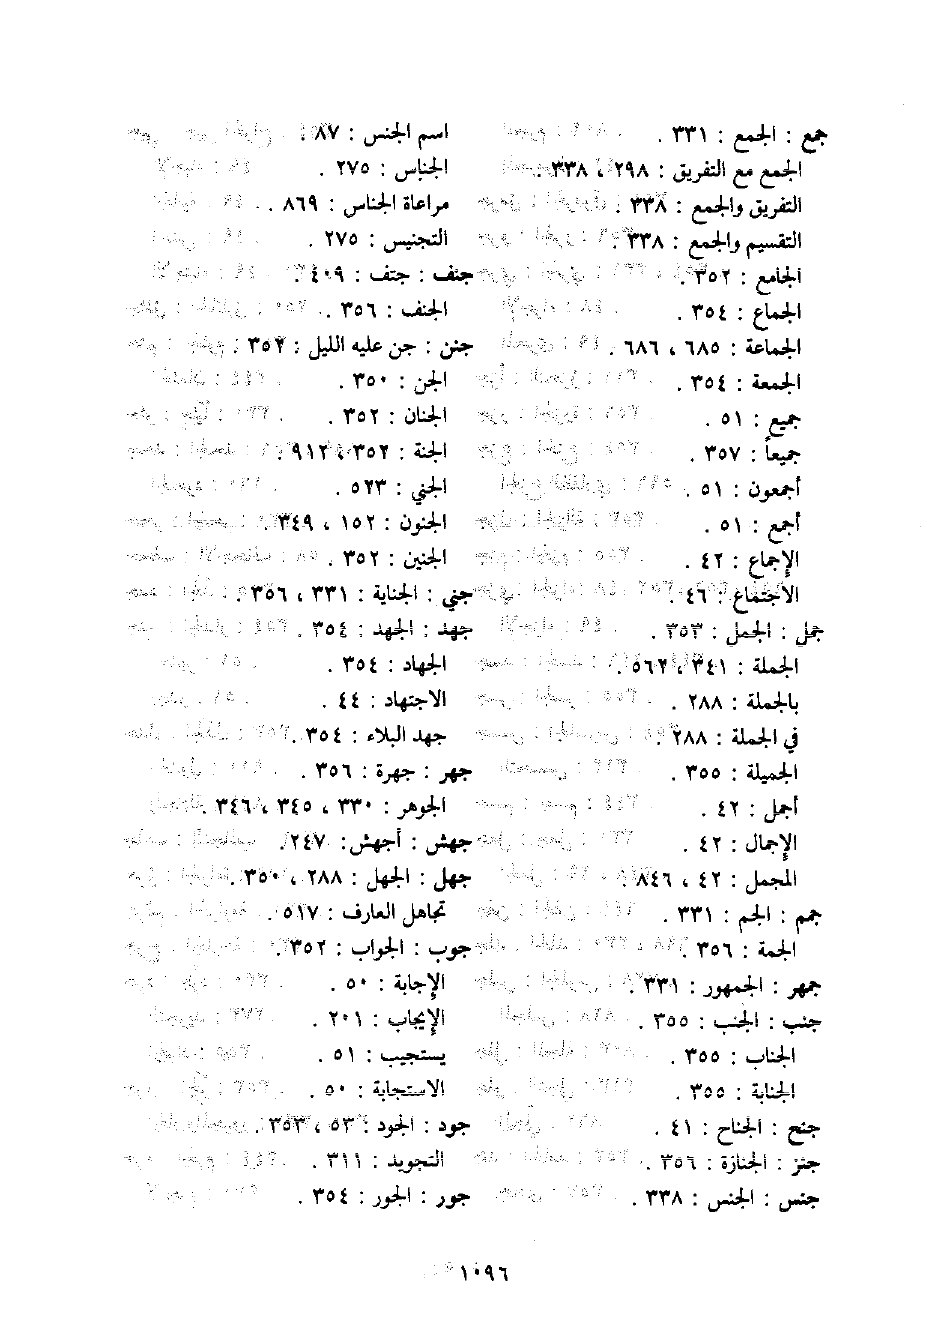 جمع : الجمع : ٣٣١ .
الجمع مع التفريق : ٢٩٨ ، ٣٣٨ .
التفريق والجمع : ٣٣٨ .
التقسيم والجمع : ٣٣٨ .
الجامع : ٣٥٢ .
الجماع : ٣٥٤ .
الجماعة : ٦٨٥ ، ٦٨٦ .
الجمعة : ٣٥٤ .
جميع : ٥١ .
جميعاً : ٣٥٧ .
أجمعون : ٥١ .
أجمع : ٥١ .
الإجماع : ٤٢ .
الاجتماع : ٤٦ .
جمل : الجمل : ٣٥٣ .
الجملة : ٣٤١ ، ٥٦٢ .
بالجملة : ٢٨٨ .
في الجملة : ٢٨٨ .
الجميلة : ٣٥٥ .
أجمل : ٤٢ .
الإجمال : ٤٢ .
المجمل : ٤٢ ، ٨٤٦ .
جمم : الجم : ٣٣١ .
الجمة : ٣٥٦ .
جمهر : الجمهور : ٣٣١ .
جنب : الجنب : ٣٥٥ .
الجناب : ٣٥٥ .
الجنابة : ٣٥٥ .
جنح : الجناح : ٤١ .
جنز : الجنازة : ٣٥٦ .
جنس : الجنس : ٣٣٨ .
اسم الجنس : ٨٧ .
الجناس : ٢٧٥ .
مراعاة الجناس : ٨٦٩ .
التجنيس : ٢٧٥ .
جنف : جتف : ٤٠٩ .
الجنف : ٣٥٦ .
جنن : جن عليه الليل : ٣٥٢ .
الجن : ٣٥٠ .
الجنان : ٣٥٢ .
الجنة : ٣٥٢ ، ٩١٢ .
الجني : ٥٢٣ .
الجنون : ١٥٢ ، ٣٤٩ .
الجنين : ٣٥٢ .
جني : الجناية : ٣٣١ ، ٣٥٦ .
جهد : الجهد : ٣٥٤ .
الجهاد : ٣٥٤ .
الاجتهاد : ٤٤ .
جهد البلاء : ٣٥٤ .
جهر : جهرة : ٣٥٦ .
الجوهر : ٣٣٠ ، ٣٤٥ ، ٣٤٦ .
جهش : أجهش : ٢٤٧ .
جهل : الجهل : ٢٨٨ ، ٣٥٠ .
تجاهل العارف : ٥١٧ .
جوب : الجواب : ٣٥٢ .
الإجابة : ٥٠ .
الإيجاب : ٢٠١ .
يستجيب : ٥١ .
الاستجابة : ٥٠ .
جود : الجود : ٥٣ ، ٣٥٣ .
التجويد : ٣١١ .
جور : الجور : ٣٥٤ .
١٠٩٦